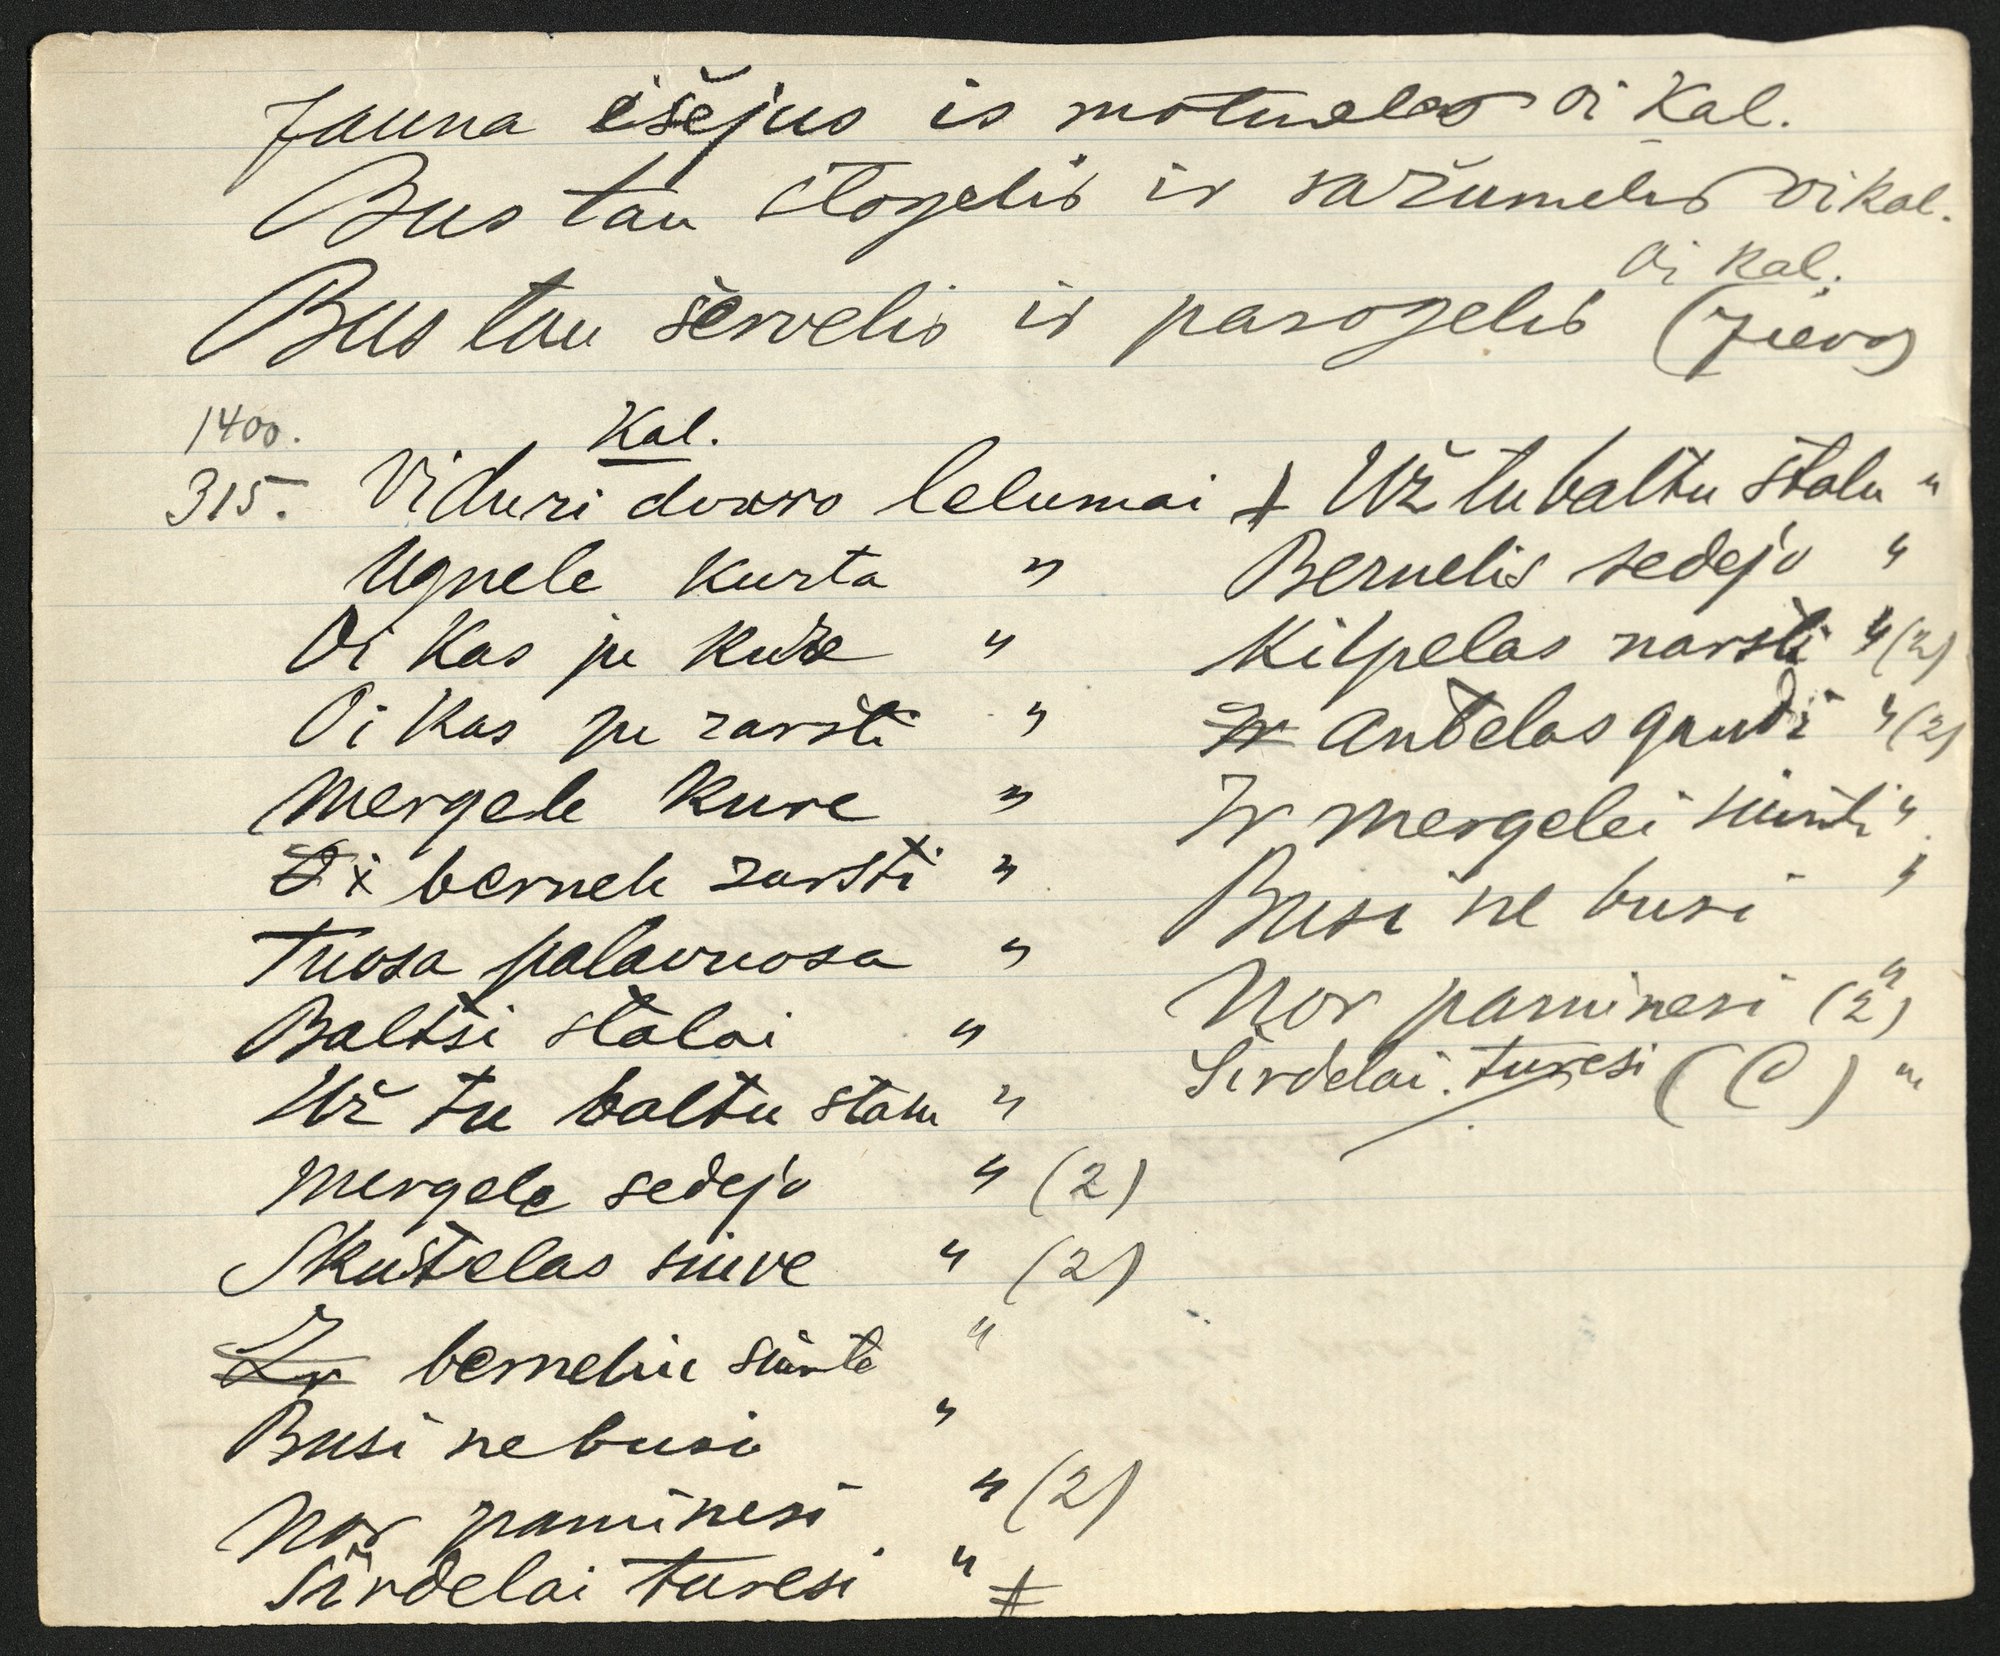 Jauna išėjus is motueles oi Kal.
Bus tau stogelis ir saržumelis oi kal.
oi kal.
Bus tau servelis ir parogelis
1400.
Kal.
315. Viduri dvaro lelumai "
Ugnele kurta "
Oi Kas ju kure "
Oi Kas ju zarsti "
Mergele kure "
bernele zarsti "
Tuosa palavuosa "
Baltsi stalai "
Už tu baltu stalu "
Mergele sedejo " (2)
Skustelas siuve " (2)
Ir berneliu siunte "
Busi ne busi "
Nor paminesi " (2)
Sirdelai turesi "
Už tu baltu stalu "
Bernelis sedejo "
Kilpelas narsti " (2)
Ir antelas gaudi " (2)
Ir mergelei siunti "
Busi ne busi "
Nor paminesi " (2)
Sirdelai turesi "